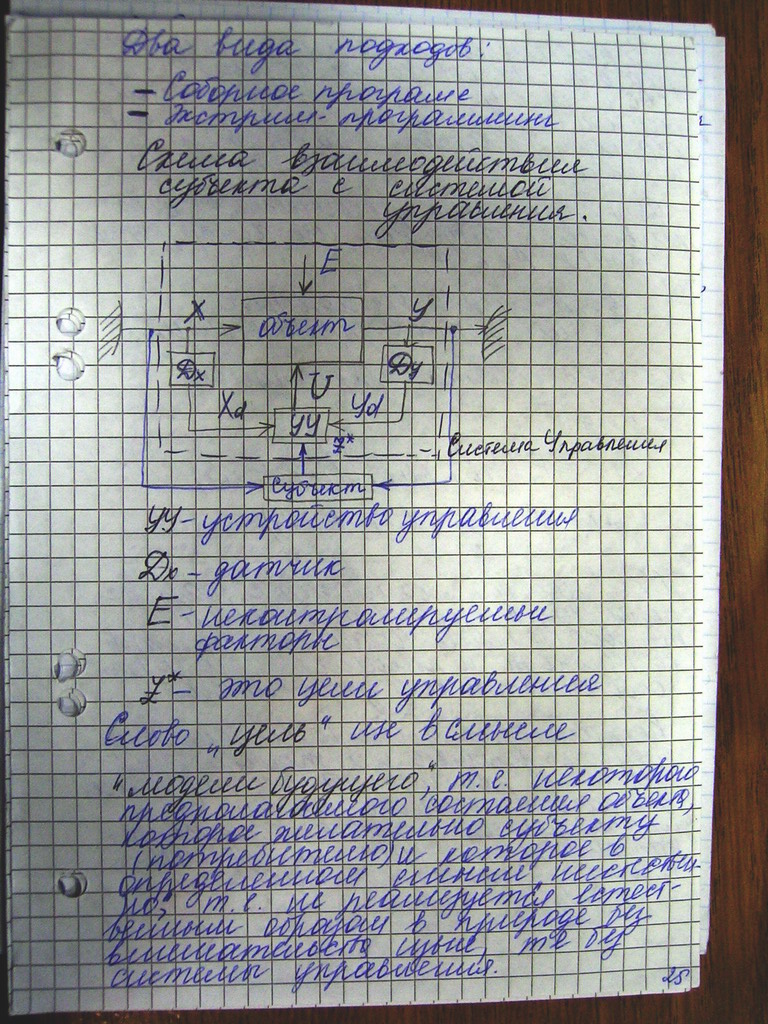 Два вида подходов:
- Соборное програме
- Экстрим-программинг
Схема взаимодействия
субъекта с системой
управления.
E
X
Объект
Y
Dx
Dy
U
Xd
Yd
УУ
Z*
Система Управления
Субъект
УУ - устройство управления
Dx - датчик
E - неконтролируемые
факторы
Z* - это цели управления
Слово „цель“ в смысле
“модели будущего“, т.е. некоторого
предполагаемого состояния объекта,
которое желательно субъекту
(потребителю) и которое в
определенном смысле
но, т.е. не реализуется естест-
венным образом в природе без
вмешательства без
системы управления.
25